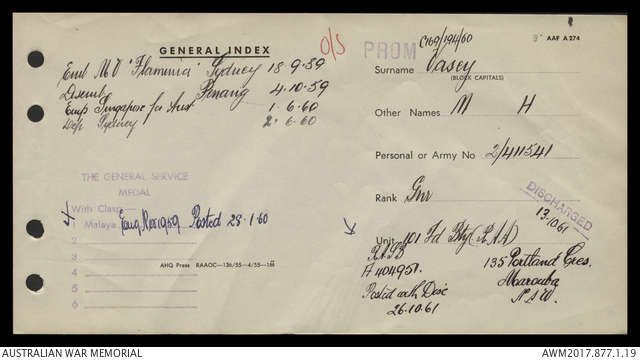 GENERAL INDEX
O/S
Emb MV "Flaminia" Sydney 18.9.59
Disemb Penang 4.10.59
Emp Singapore for Aust 1.6.60
Dep Sydney 2.6.60
THE GENERAL SERVICE
MEDAL
With Clasp
1 Malaya Posted 28.1.60
2
3
4
5
6
AHQ Press RAAOC—136/55—4/55—1m
AAF A 274
PROM C169/194/60
Surname Vasey
(BLOCK CAPITALS)
Other Names M H
Personal or Army No 2/411541
Rank Gnr
DISCHARGED
13.10.61
Unit 101 Fd Bty (RAA)
A 404957.
Posted with Disc
26.10.61
135 Portland Cres.
Marouba
N.S.W.
AUSTRALIAN WAR MEMORIAL
AWM2017.877.1.19